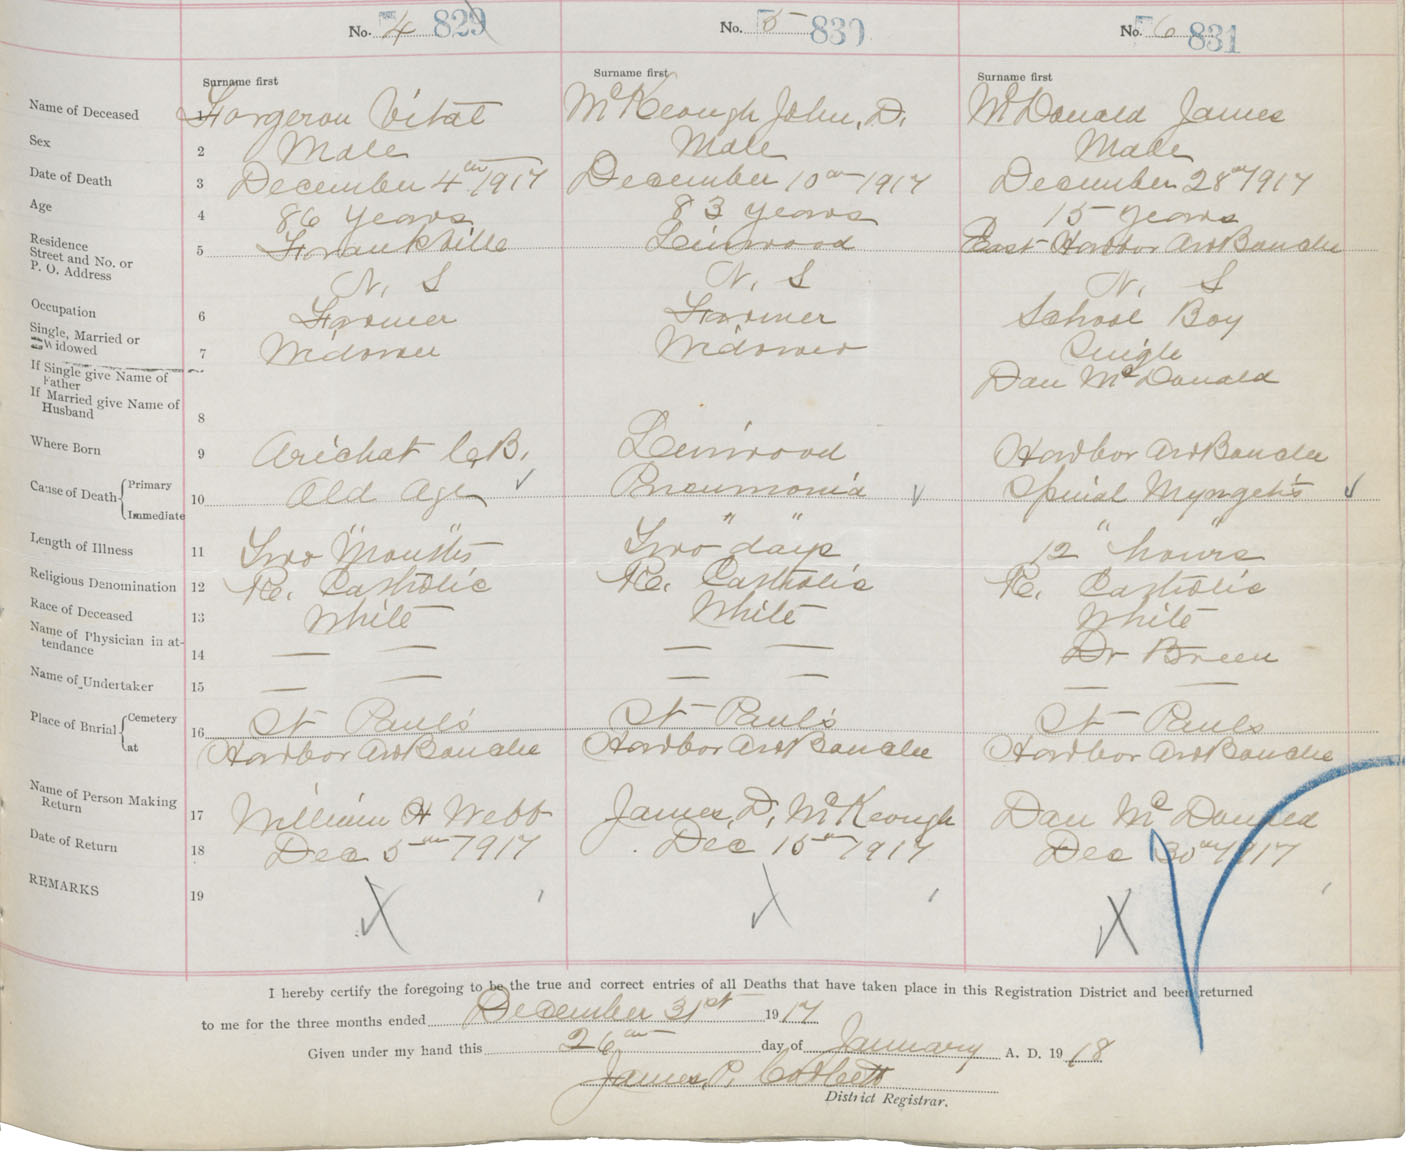 No. 4 829
No. 5 830
No. 6 831
Surname first
Surname first
Surname first
Name of Deceased
1
Forgeron Vital
McKeough John, D.
McDonald James
Sex
2
Male
Male
Male
Date of Death
3
December 4th 1917
December 10th 1917
December 28th 1917
Age
4
86 years
83 years
15 years
Residence
Street and No. or
P. O. Address
5
Frankville
N. S
Linwood
N. S
East Harbor Au Bouche
N. S
Occupation
6
Farmer
Farmer
School Boy
Single, Married or
Widowed
7
Widower
Widower
Single
If Single give Name of
Father
Dan McDonald
If Married give Name of
Husband
8
Where Born
9
Arichat C, B,
Linwood
Harbor Au Bouche
Cause of Death { Primary
Immediate
10
Old Age
Pneumonia
Spinal Myngetis
Length of Illness
11
Two "Months"
Two "days"
12 "hours"
Religious Denomination
12
R. Catholic
R. Catholic
R. Catholic
Race of Deceased
13
White
White
White
Name of Physician in at-
tendance
14
— —
— —
Dr Breen
Name of Undertaker
15
— —
— —
— —
Place of Burial { Cemetery
at
16
St Paul's
Harbor Au Bouche
St Paul's
Harbor Au Bouche
St Pauls
Harbor Au Bouche
Name of Person Making
Return
17
William H Webb
James, D, McKeough
Dan McDonald
Date of Return
18
Dec 5th 1917
Dec 15th 1917
Dec 30th 1917
REMARKS
19
X
X
X
I hereby certify the foregoing to be the true and correct entries of all Deaths that have taken place in this Registration District and been returned
to me for the three months ended December 31st 1917
Given under my hand this 26th day of January A. D. 1918
James, P. Corbett
District Registrar.